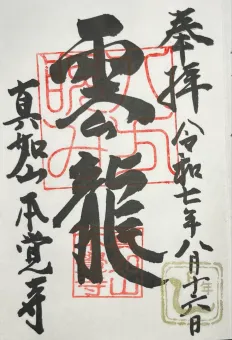 奉拝 令和七年八月十六日
雲龍
真如山本覚寺